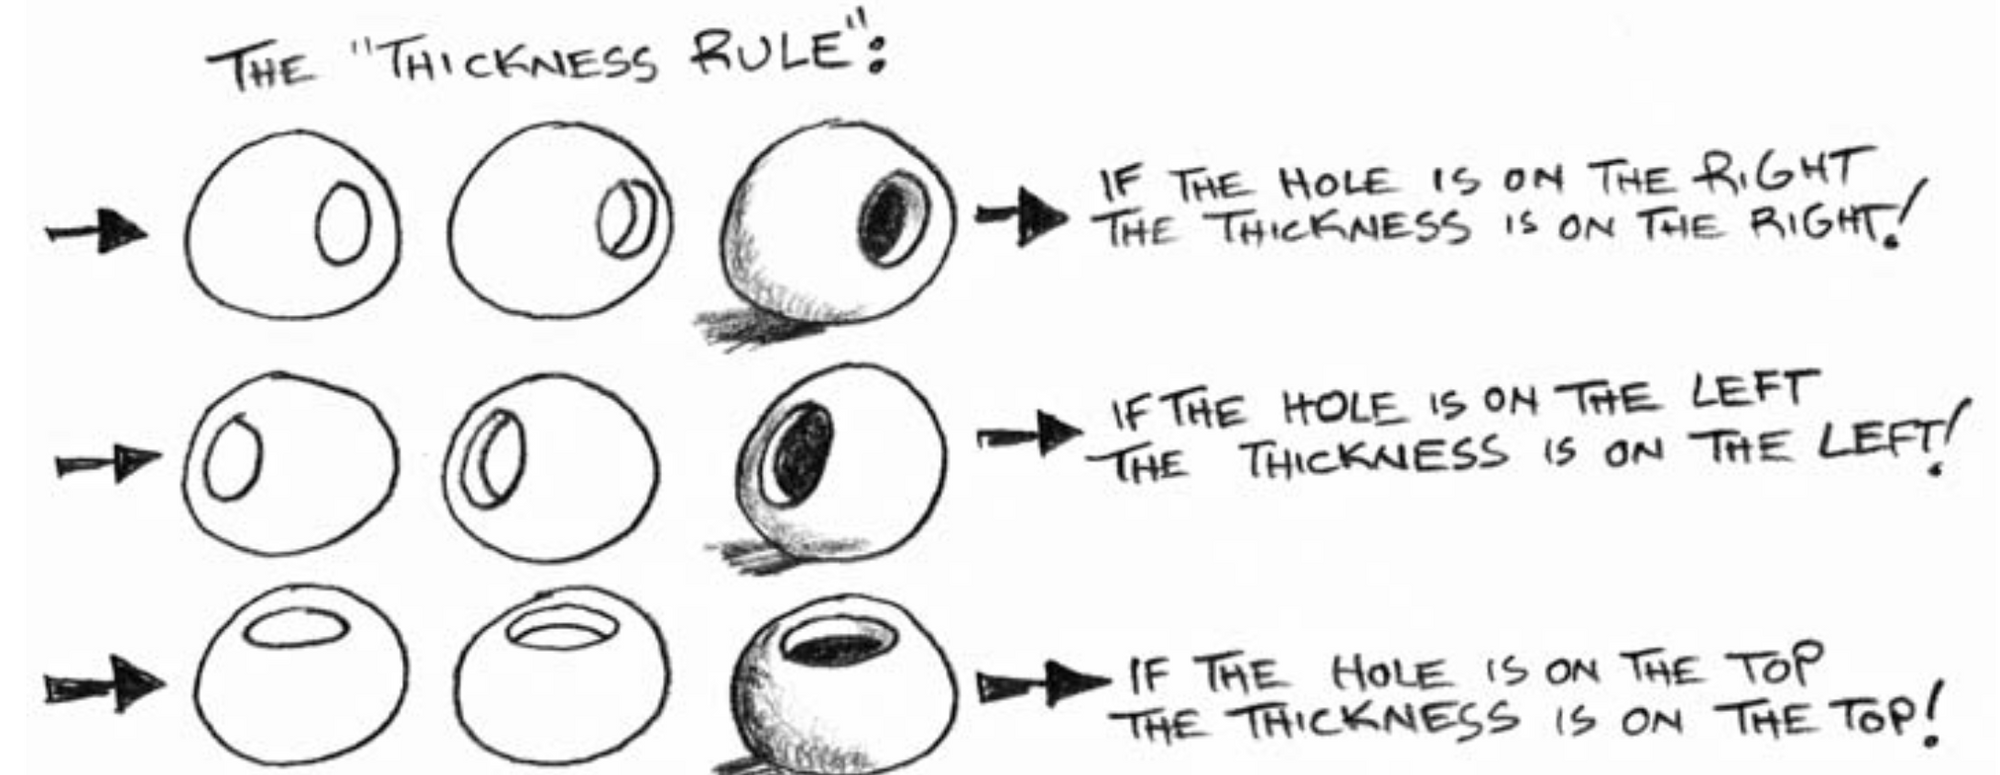 THE "THICKNESS RULE":
IF THE HOLE IS ON THE RIGHT
THE THICKNESS IS ON THE RIGHT!
IF THE HOLE IS ON THE LEFT
THE THICKNESS IS ON THE LEFT!
IF THE HOLE IS ON THE TOP
THE THICKNESS IS ON THE TOP!